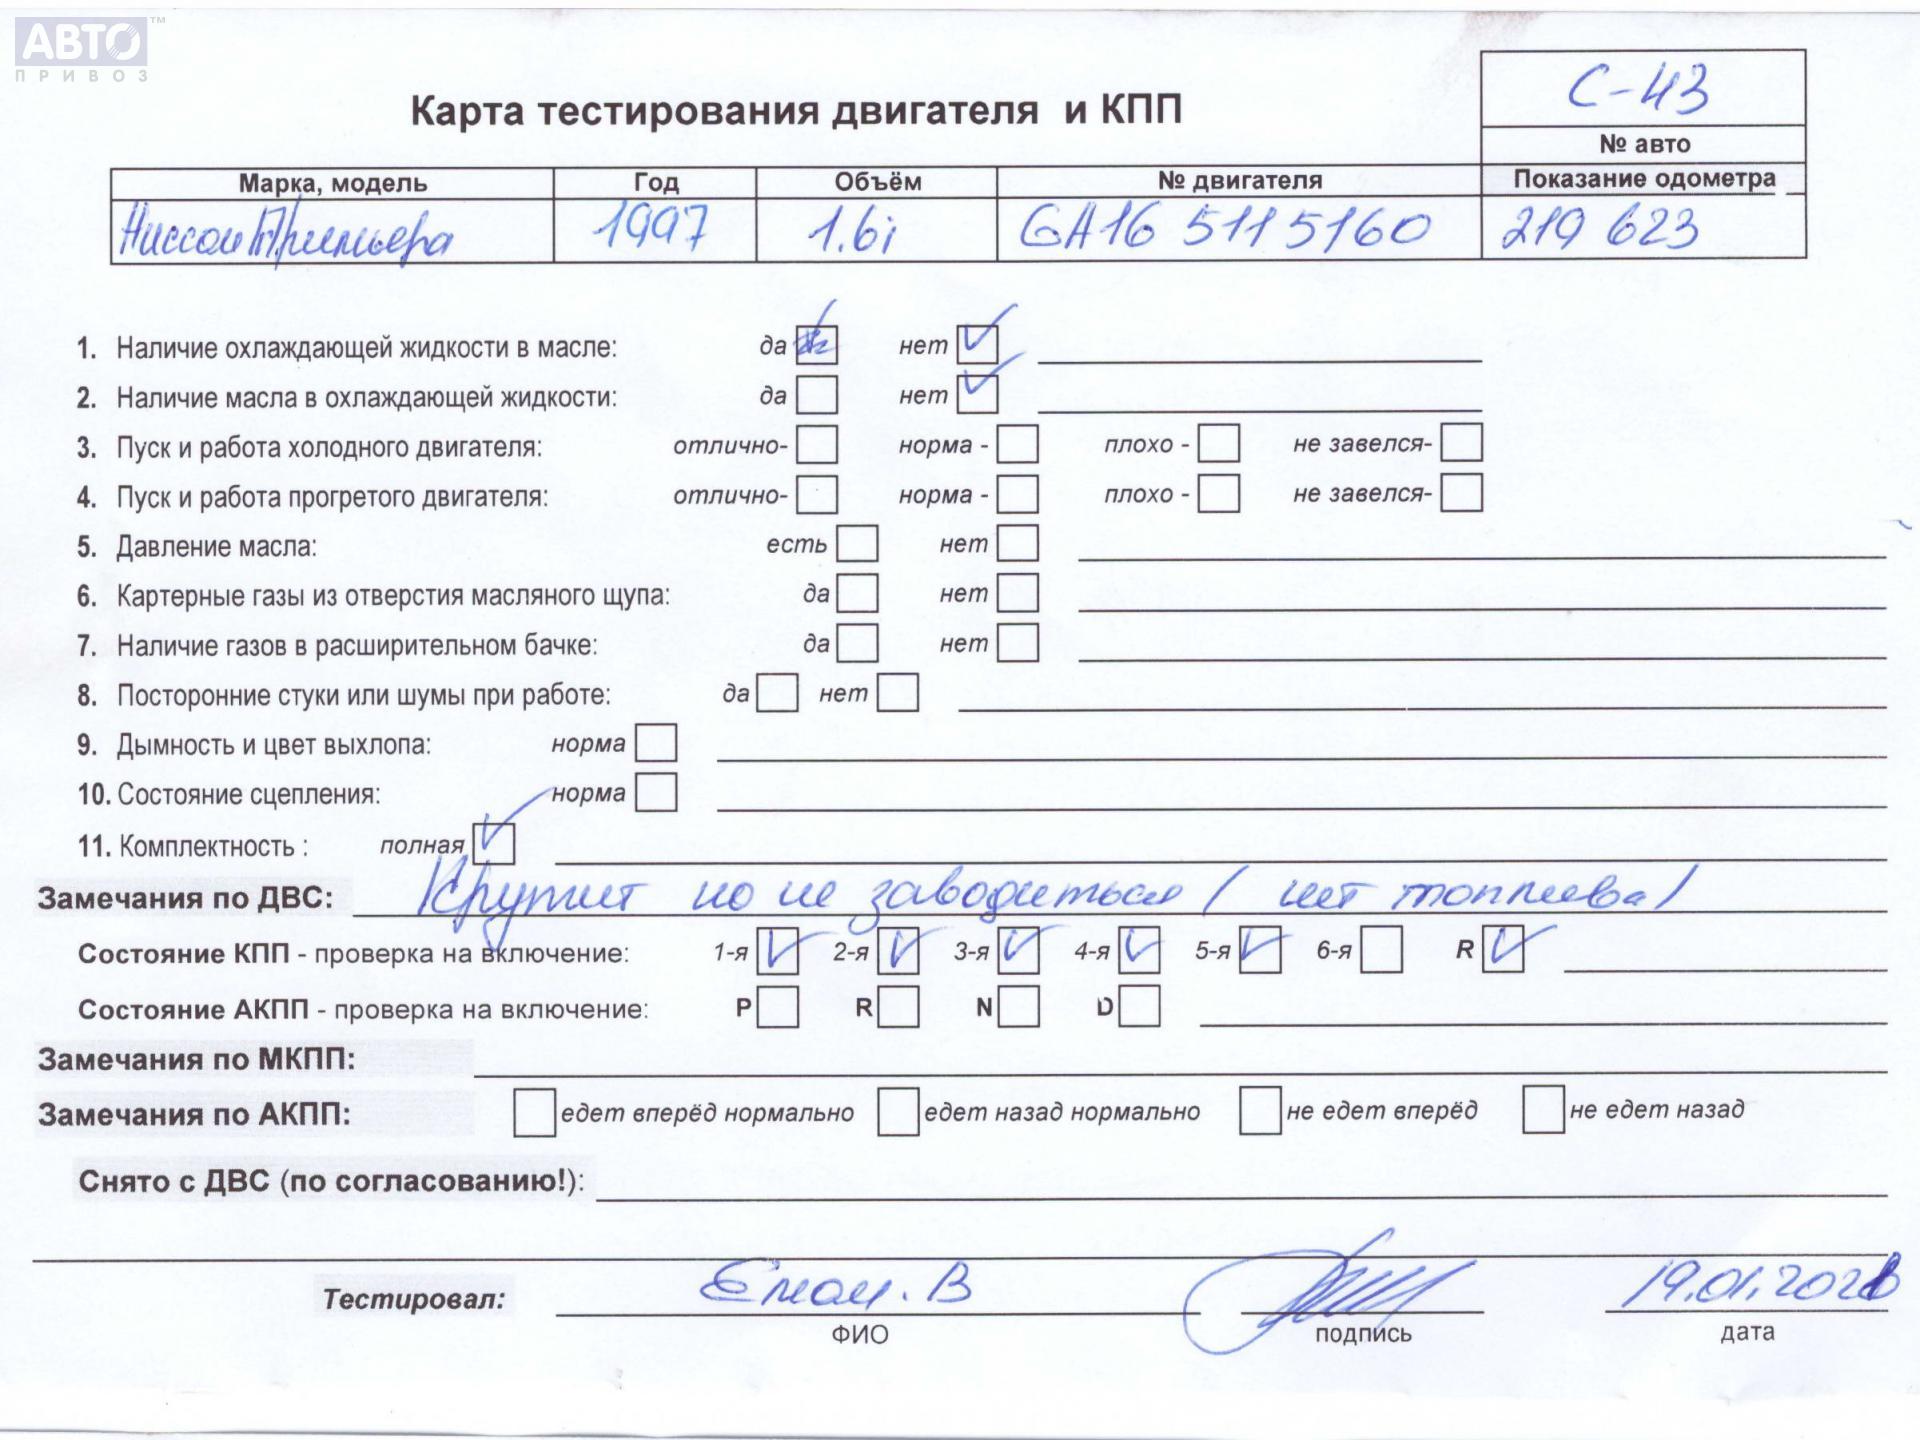 АВТО™
ПРИВОЗ
С-43
Карта тестирования двигателя и КПП
№ авто
Марка, модель Год Объём № двигателя Показание одометра
Ниссан Примьера 1997 1.6i GA16 5115160 219 623
1. Наличие охлаждающей жидкости в масле: да нет
2. Наличие масла в охлаждающей жидкости: да нет
3. Пуск и работа холодного двигателя: отлично- норма - плохо - не завелся-
4. Пуск и работа прогретого двигателя: отлично- норма - плохо - не завелся-
5. Давление масла: есть нет
6. Картерные газы из отверстия масляного щупа: да нет
7. Наличие газов в расширительном бачке: да нет
8. Посторонние стуки или шумы при работе: да нет
9. Дымность и цвет выхлопа: норма
10. Состояние сцепления: норма
11. Комплектность : полная
Замечания по ДВС: Крутит но не заводиться ( нет топлива)
Состояние КПП - проверка на включение: 1-я 2-я 3-я 4-я 5-я 6-я R
Состояние АКПП - проверка на включение: P R N D
Замечания по МКПП:
Замечания по АКПП: едет вперёд нормально едет назад нормально не едет вперёд не едет назад
Снято с ДВС (по согласованию!):
Тестировал:
ФИО подпись дата